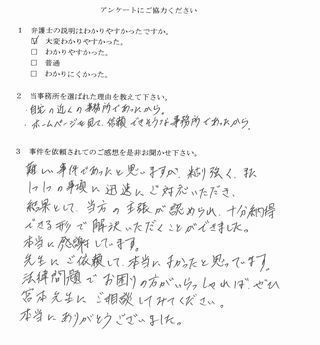 アンケートにご協力ください
1 弁護士の説明はわかりやすかったですか。
☑ 大変わかりやすかった。
□ わかりやすかった。
□ 普通
□ わかりにくかった。
2 当事務所を選ばれた理由を教えて下さい。
・自宅の近くの事務所であったから。
・ホームページを見て、信頼できそうな事務所であったから。
3 事件を依頼されてのご感想を是非お聞かせ下さい。
難しい事件であったと思いますが、粘り強く、また
1つ1つの事項に迅速にご対応いただき、
結果として、当方の主張が認められ、十分納得
できる形で解決いただくことができました。
本当に感謝しています。
先生にご依頼して、本当によかったと思っています。
法律問題でお困りの方がいらっしゃれば、ぜひ
宮本先生にご相談してみてください。
本当にありがとうございました。